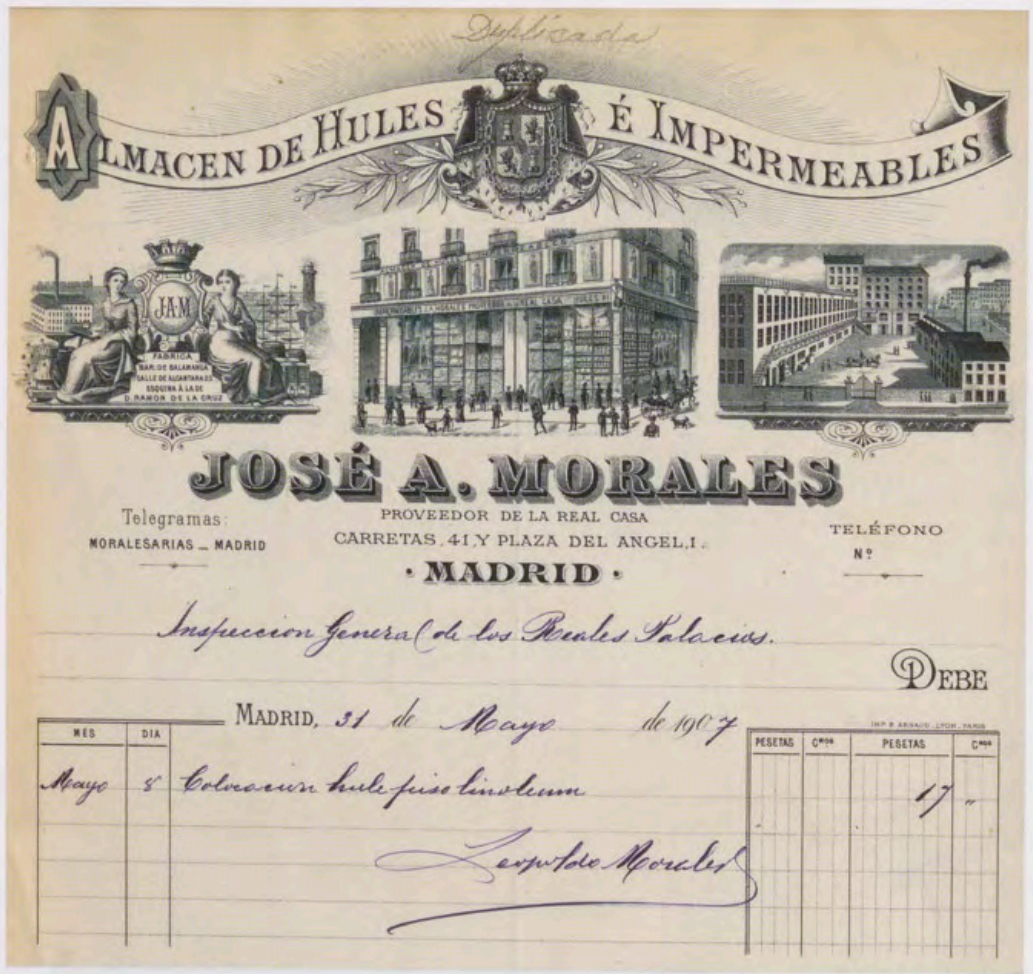 Duplicada
ALMACEN DE HULES É IMPERMEABLES
J.A.M
FABRICA
BAR. DE SALAMANCA
CALLE DE ALCANTARA 23
ESQUINA Á LA DE
D. RAMON DE LA CRUZ
JOSÉ A. MORALES
PROVEEDOR DE LA REAL CASA
CARRETAS, 41, Y PLAZA DEL ANGEL, 1.
· MADRID ·
Telegramas:
MORALESARIAS _ MADRID
TELÉFONO
Nº
Inspeccion General de los Reales Palacios.
DEBE
MADRID, 31 de Mayo de 1907
IMP. B. ARNAUD, LYON, PARIS
MES DIA PESETAS Cmos PESETAS Cmos
Mayo 8 Colocacion hule piso linoleum 17 "
Leopoldo Morales